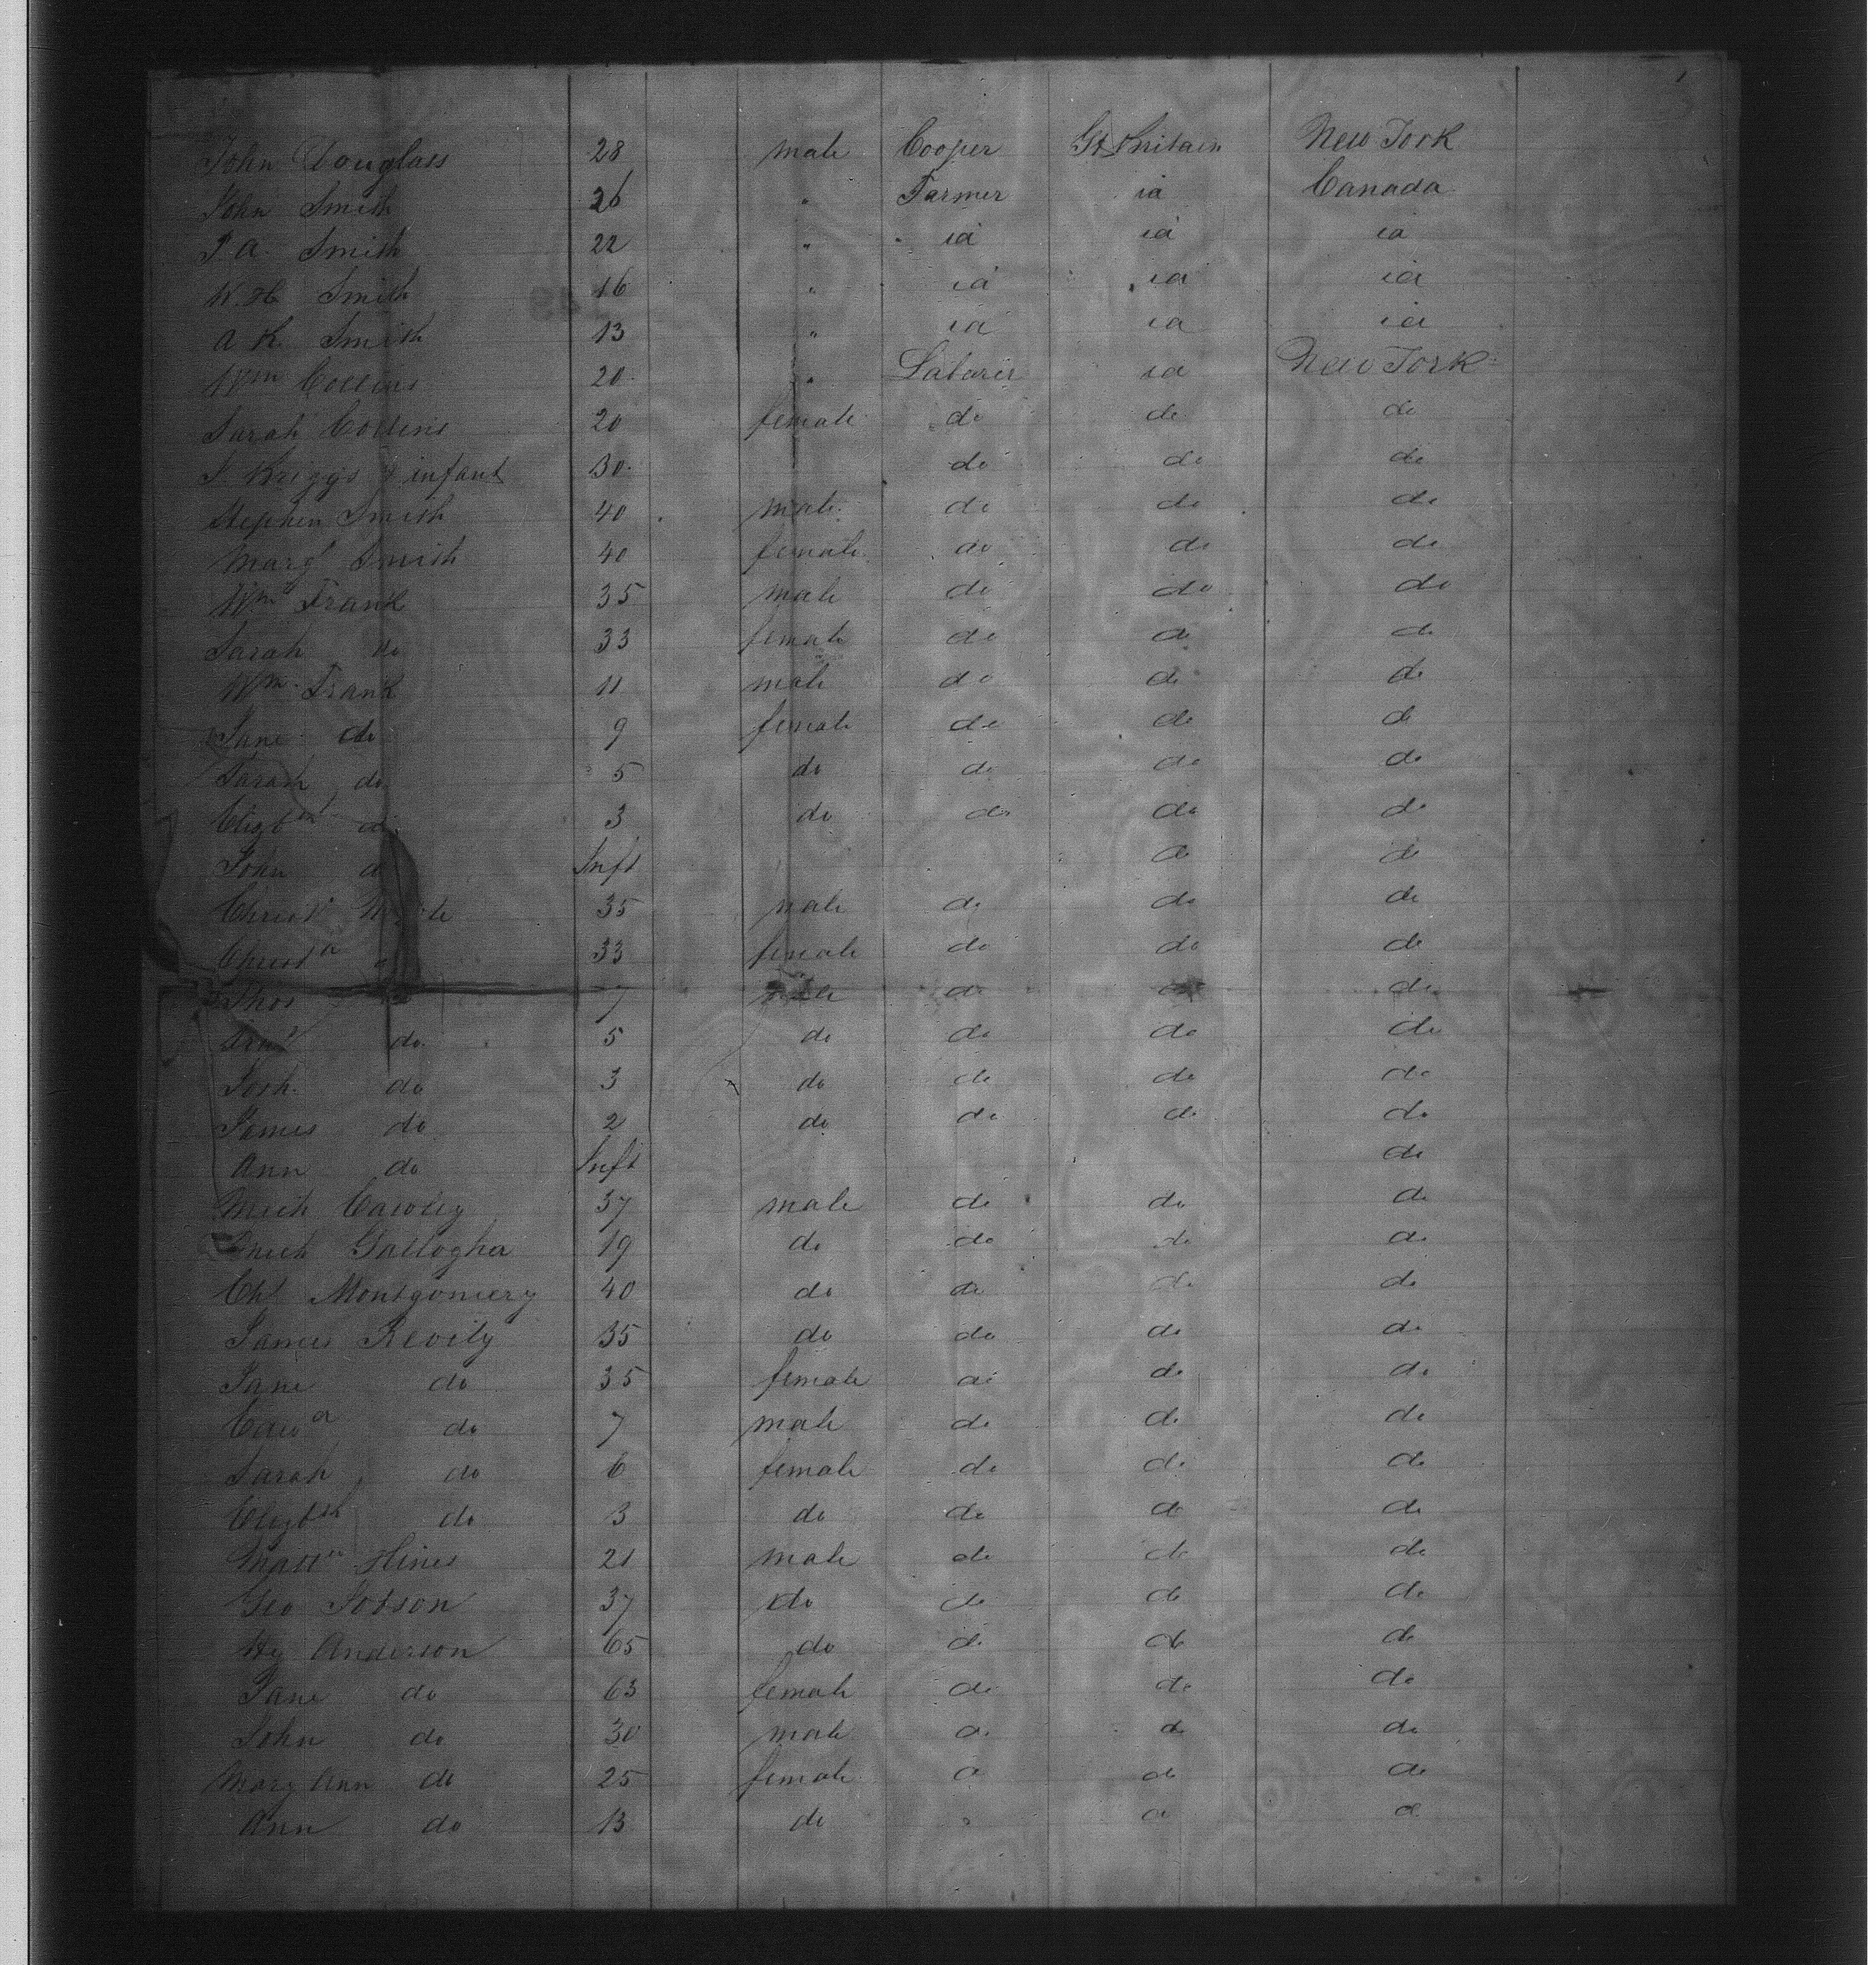 John Douglass 28 male Cooper Gt Britain New York
John Smith 26 " Farmer id Canada
J. A. Smith 22 " id id id
W. H. Smith 16 " id id id
A R Smith 13 " id id id
Wm Collins 20 " Laborer id New York
Sarah Collins 20 female do do do
S. Briggs & infant 30 do do do
Stephen Smith 40 male do do do
Margt Smith 40 female do do do
Wm Frank 35 male do do do
Sarah do 33 female do do do
Wm Frank 11 male do do do
Jane do 9 female do do do
Sarah do 5 do do do do
Elizbth do 3 do do do do
John do Inft do do
Christr 35 male do do do
Christa 33 female do do do
Thos 7 male do do do
do 5 do do do do
Josh. do 3 do do do do
James do 2 do do do do
Ann do Inft do
Mich Cawley 37 male do do do
Mich Gallogher 19 do do do do
Cht Montgomery 40 do do do do
James 35 do do do do
Jane do 35 female do do do
do 7 male do do do
Sarah do 6 female do do do
Elizbth do 3 do do do do
Hines 21 male do do do
Geo Jobson 37 do do do do
Hy Anderson 65 do do do do
Jane do 63 female do do do
John do 30 male do do do
Mary Ann do 25 female do do do
Ann do 13 do " do do